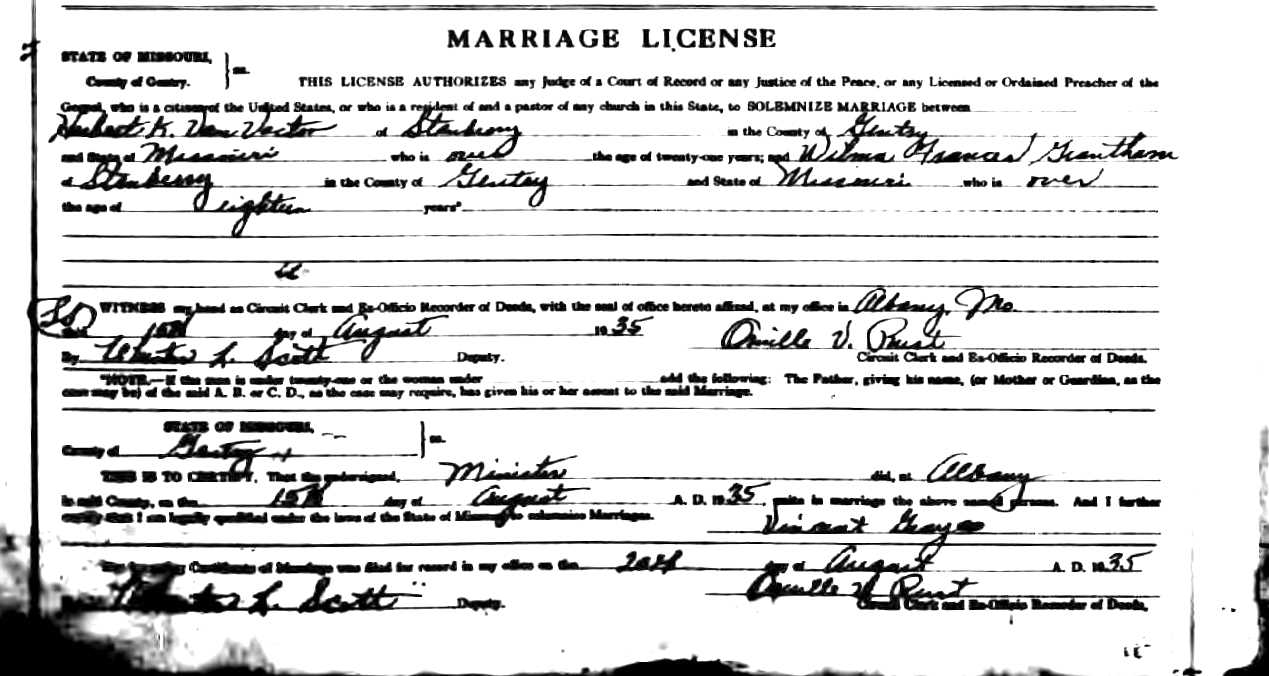 MARRIAGE LICENSE
STATE OF MISSOURI,
County of Gentry. } ss.
THIS LICENSE AUTHORIZES any Judge of a Court of Record or any Justice of the Peace, or any Licensed or Ordained Preacher of the
Gospel, who is a citizen of the United States, or who is a resident of and a pastor of any church in this State, to SOLEMNIZE MARRIAGE between
Herbert K. Van Vactor of Stanberry in the County of Gentry
and State of Missouri who is over the age of twenty-one years; and Wilma Frances Grantham
of Stanberry in the County of Gentry and State of Missouri who is over
the age of eighteen years*
WITNESS my hand as Circuit Clerk and Ex-Officio Recorder of Deeds, with the seal of office hereto affixed, at my office in Albany, Mo.
this 15th day of August 1935 Orville V. Rust
By L. Scott Deputy. Circuit Clerk and Ex-Officio Recorder of Deeds.
*NOTE.—If the man is under twenty-one or the woman under add the following: The Father, giving his name, (or Mother or Guardian, as the
case may be) of the said A. B. or C. D., as the case may require, has given his or her assent to the said Marriage.
STATE OF MISSOURI,
County of Gentry } ss.
THIS IS TO CERTIFY, That the undersigned, Minister did, at Albany
in said County, on the 15th day of August A. D. 1935, unite in marriage the above named persons. And I further
certify that I am legally qualified under the laws of the State of Missouri to solemnize Marriages.
Vincent
The foregoing Certificate of Marriage was filed for record in my office on the 20th day of August A. D. 1935
L. Scott Deputy. Orville V. Rust
Circuit Clerk and Ex-Officio Recorder of Deeds.